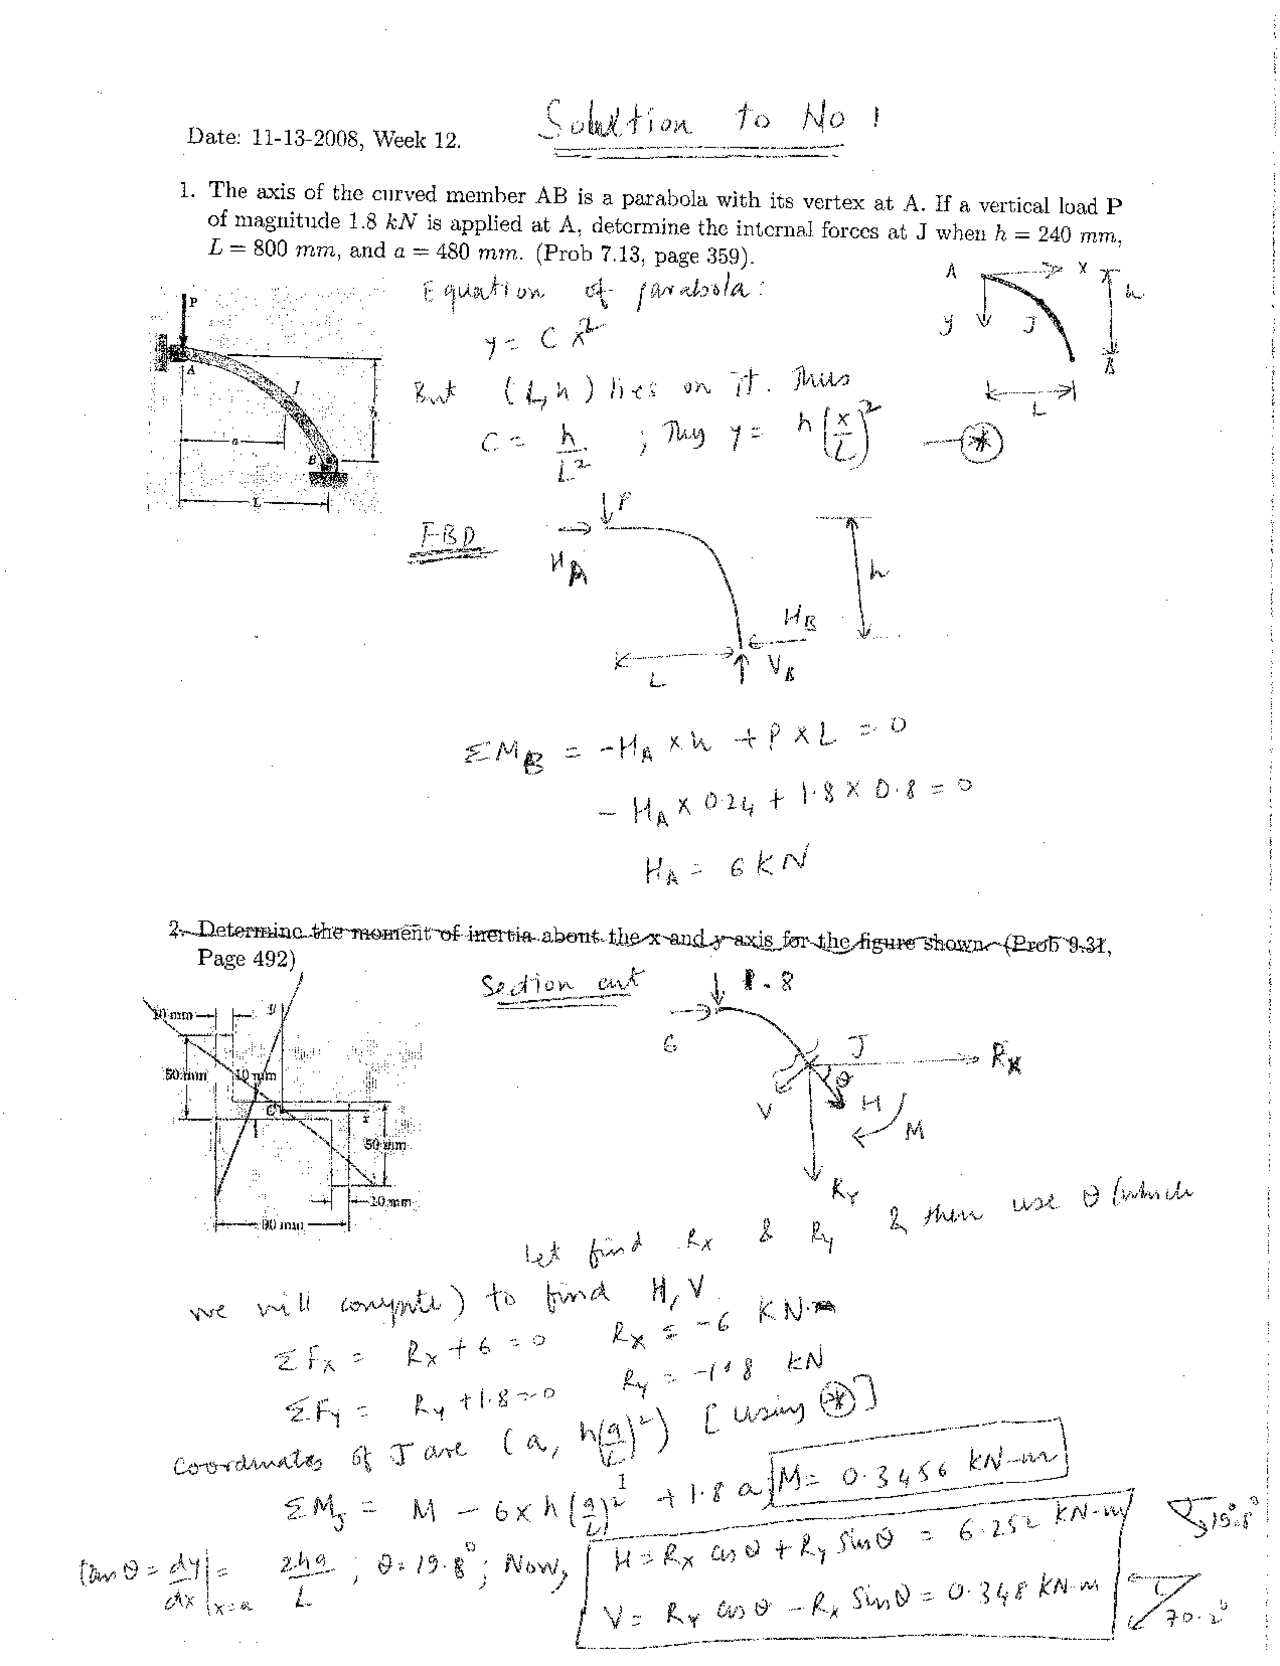 Solution to No 1
Date: 11-13-2008, Week 12.
1. The axis of the curved member AB is a parabola with its vertex at A. If a vertical load P
of magnitude 1.8 kN is applied at A, determine the internal forces at J when h = 240 mm,
L = 800 mm, and a = 480 mm. (Prob 7.13, page 359).
A x h
y J
B
L
Equation of parabola:
y = C x²
But (L, h) lies on it. Thus
C = h/L² ; Thus y = h(x/L)² — (*)
P
A
J
a
B
L
FBD
P
H_A
h
H_B
L V_B
ΣM_B = -H_A × h + P × L = 0
- H_A × 0.24 + 1.8 × 0.8 = 0
H_A = 6 KN
2. Determine the moment of inertia about the x and y axis for the figure shown. (Prob 9.31,
Page 492)
Section cut
1.8
6
J
R_X
θ
V
H
M
R_Y
10 mm
y
50 mm
10 mm
C
x
50 mm
10 mm
80 mm
Let find R_x & R_y & then use θ (which
we will compute) to find H, V.
ΣF_x = R_x + 6 = 0 R_x = -6 KN
ΣF_y = R_y + 1.8 = 0 R_y = -1.8 KN
Coordinates of J are (a, h(a/L)²) [Using (*)]
ΣM_J = M - 6 × h (a/L)² + 1.8 a ; M = 0.3456 KN-m
tan θ = dy/dx |x=a = 2ha/L ; θ = 19.8° ; Now,
H = R_x cos θ + R_y sin θ = 6.252 KN-m
V = R_y cos θ - R_x sin θ = 0.348 KN-m
19.8°
70.2°